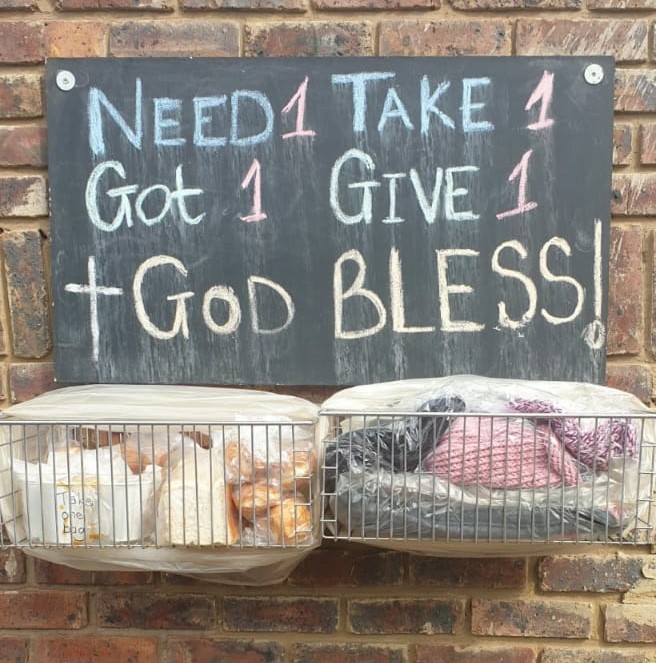 NEED 1 TAKE 1
Got 1 GIVE 1
GOD BLESS!
Take
one
bag